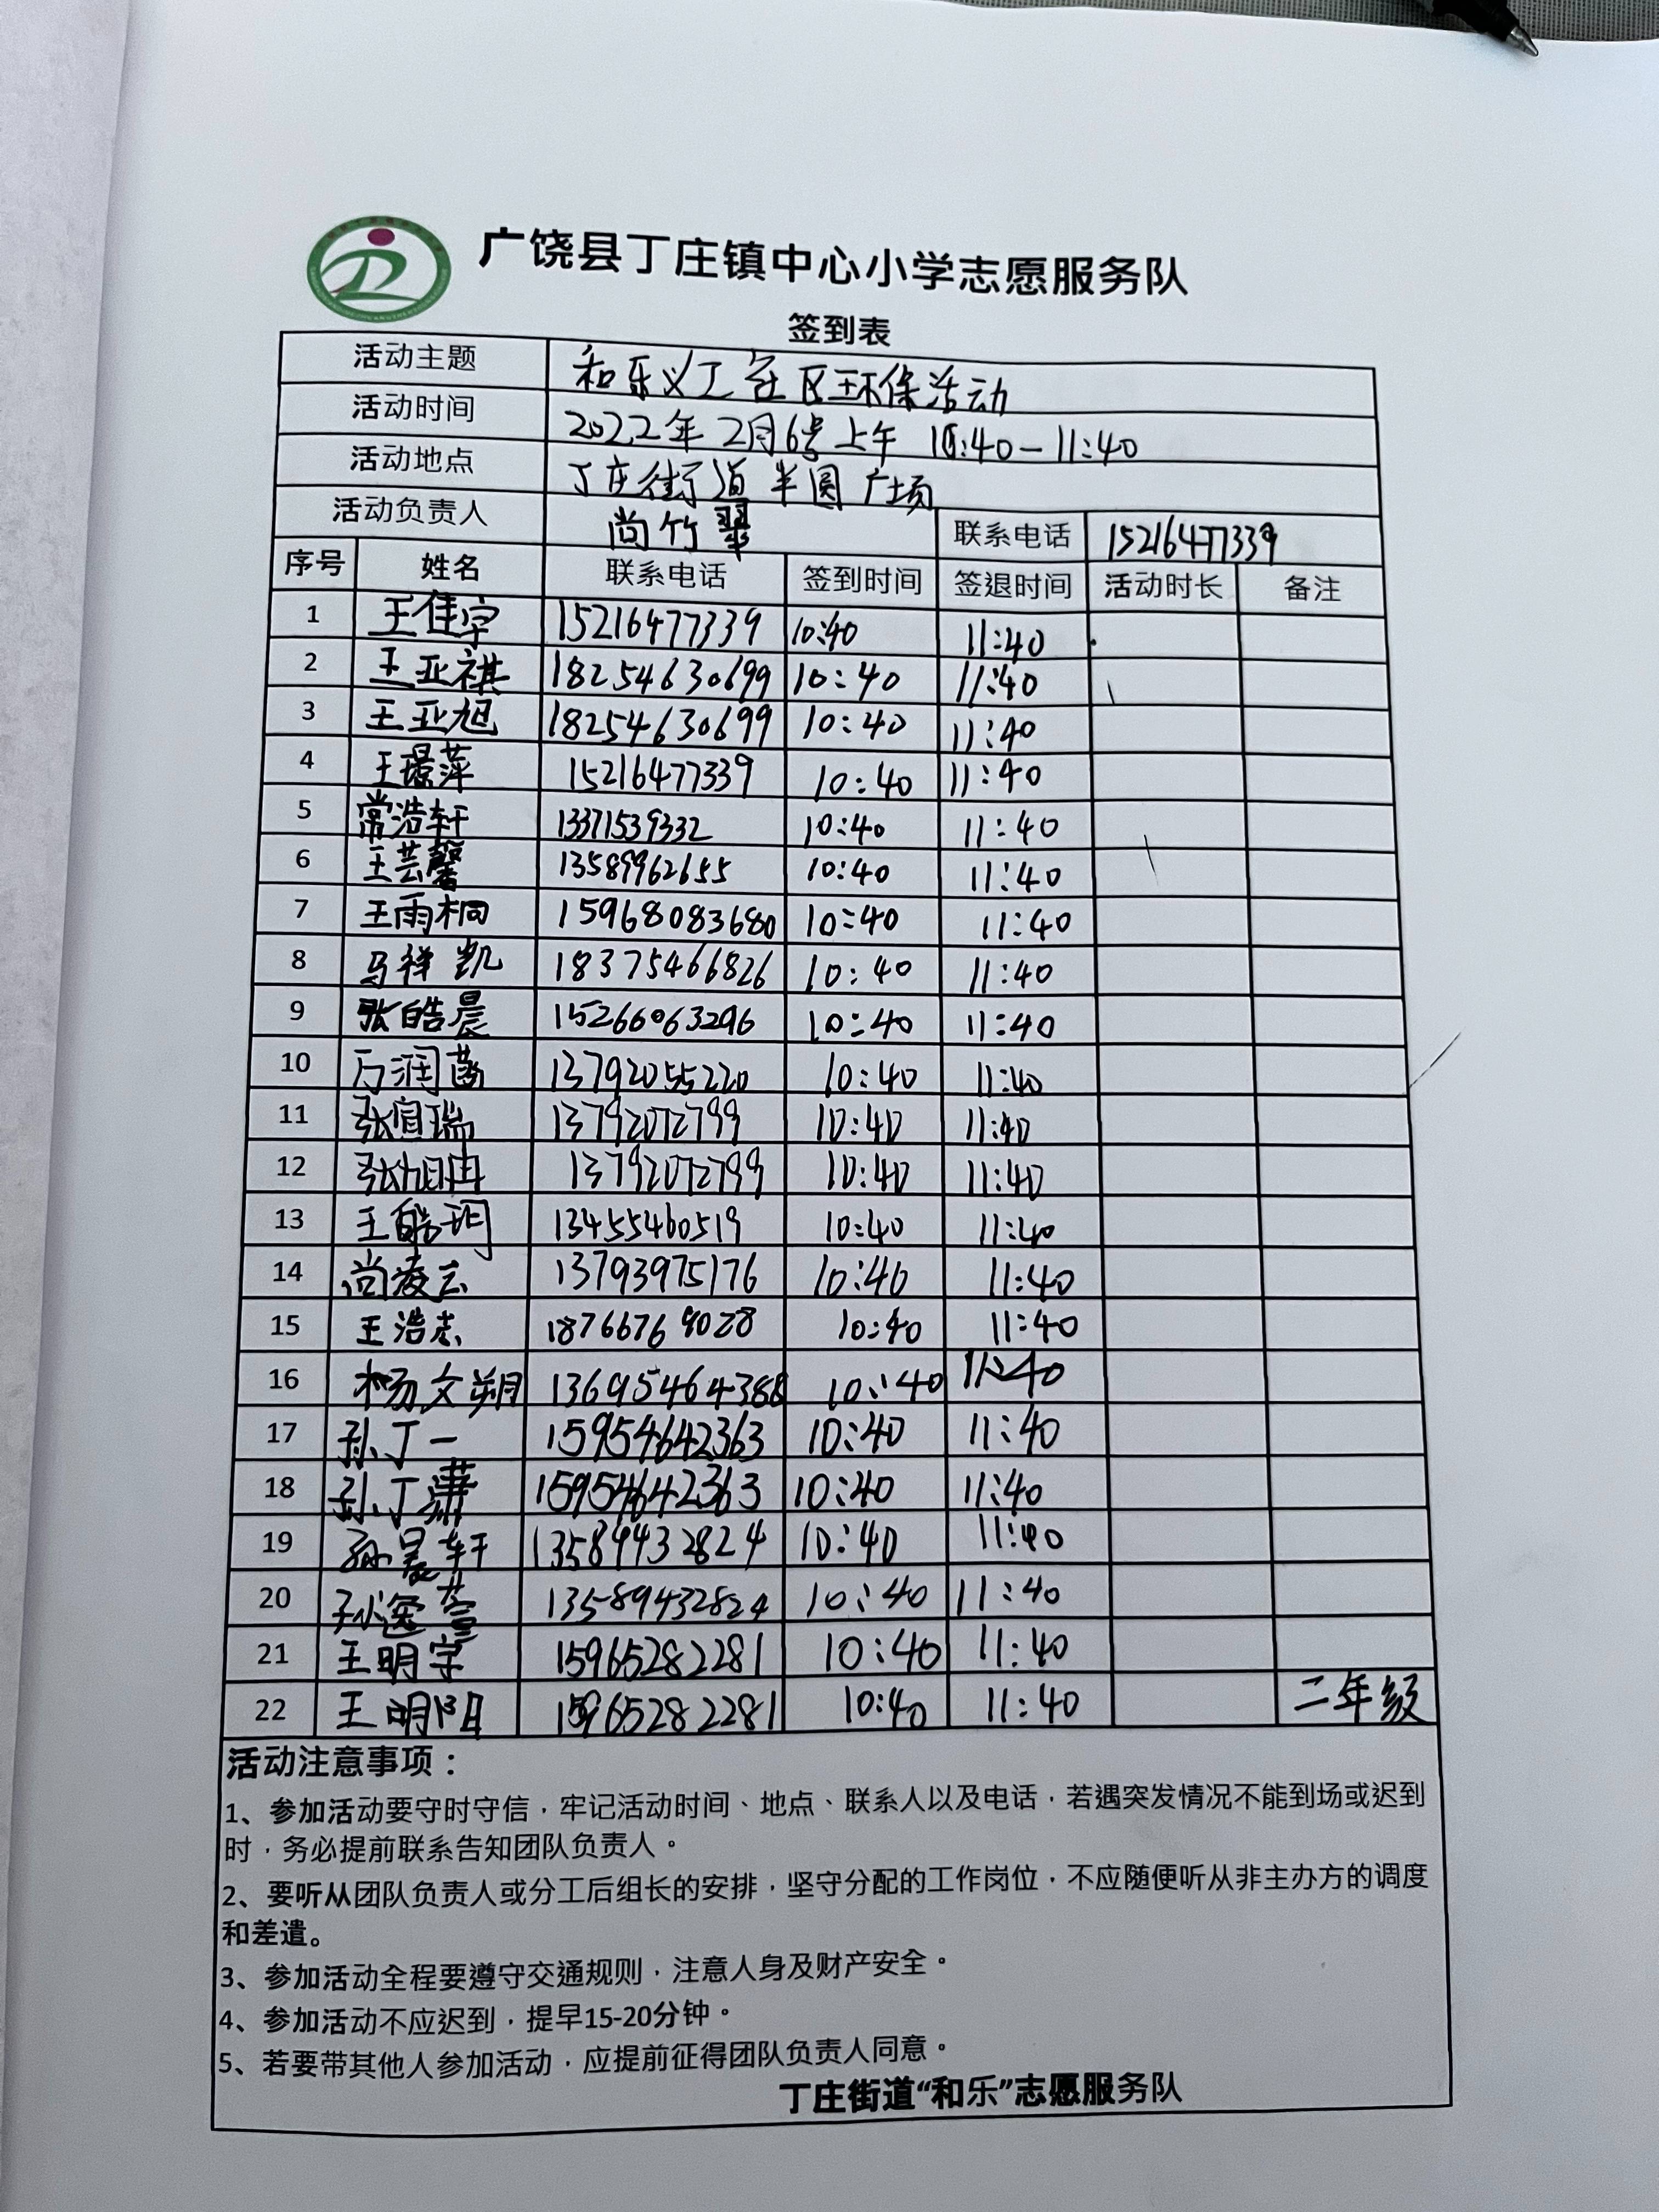 广饶县丁庄镇中心小学志愿服务队
签到表
活动主题 和乐义工社区环保活动
活动时间 2022年2月6号上午 10:40-11:40
活动地点 丁庄街道半圆广场
活动负责人 尚竹翠 联系电话 15216477339
序号 姓名 联系电话 签到时间 签退时间 活动时长 备注
1 王佳宇 15216477339 10:40 11:40
2 王亚祺 18254630699 10:40 11:40
3 王亚旭 18254630699 10:40 11:40
4 王璟萍 15216477339 10:40 11:40
5 常浩轩 13371539332 10:40 11:40
6 王芸馨 13589962655 10:40 11:40
7 王雨桐 15968083680 10:40 11:40
8 马祥凯 18375466826 10:40 11:40
9 张皓晨 15266063296 10:40 11:40
10 万润菡 13792055220 10:40 11:40
11 张宜瑞 13792072799 10:40 11:40
12 张旭冉 13792072799 10:40 11:40
13 王皓玥 13455460519 10:40 11:40
14 尚凌云 13793975176 10:40 11:40
15 王浩志 18766769028 10:40 11:40
16 杨文朔 13695464388 10:40 11:40
17 孙丁一 15954642363 10:40 11:40
18 孙丁潇 15954642363 10:40 11:40
19 孙晟轩 13589432824 10:40 11:40
20 孙逸萱 13589432824 10:40 11:40
21 王明宇 15965282281 10:40 11:40
22 王明阳 15965282281 10:40 11:40 二年级
活动注意事项：
1、参加活动要守时守信，牢记活动时间、地点、联系人以及电话，若遇突发情况不能到场或迟到
时，务必提前联系告知团队负责人。
2、要听从团队负责人或分工后组长的安排，坚守分配的工作岗位，不应随便听从非主办方的调度
和差遣。
3、参加活动全程要遵守交通规则，注意人身及财产安全。
4、参加活动不应迟到，提早15-20分钟。
5、若要带其他人参加活动，应提前征得团队负责人同意。
丁庄街道“和乐”志愿服务队